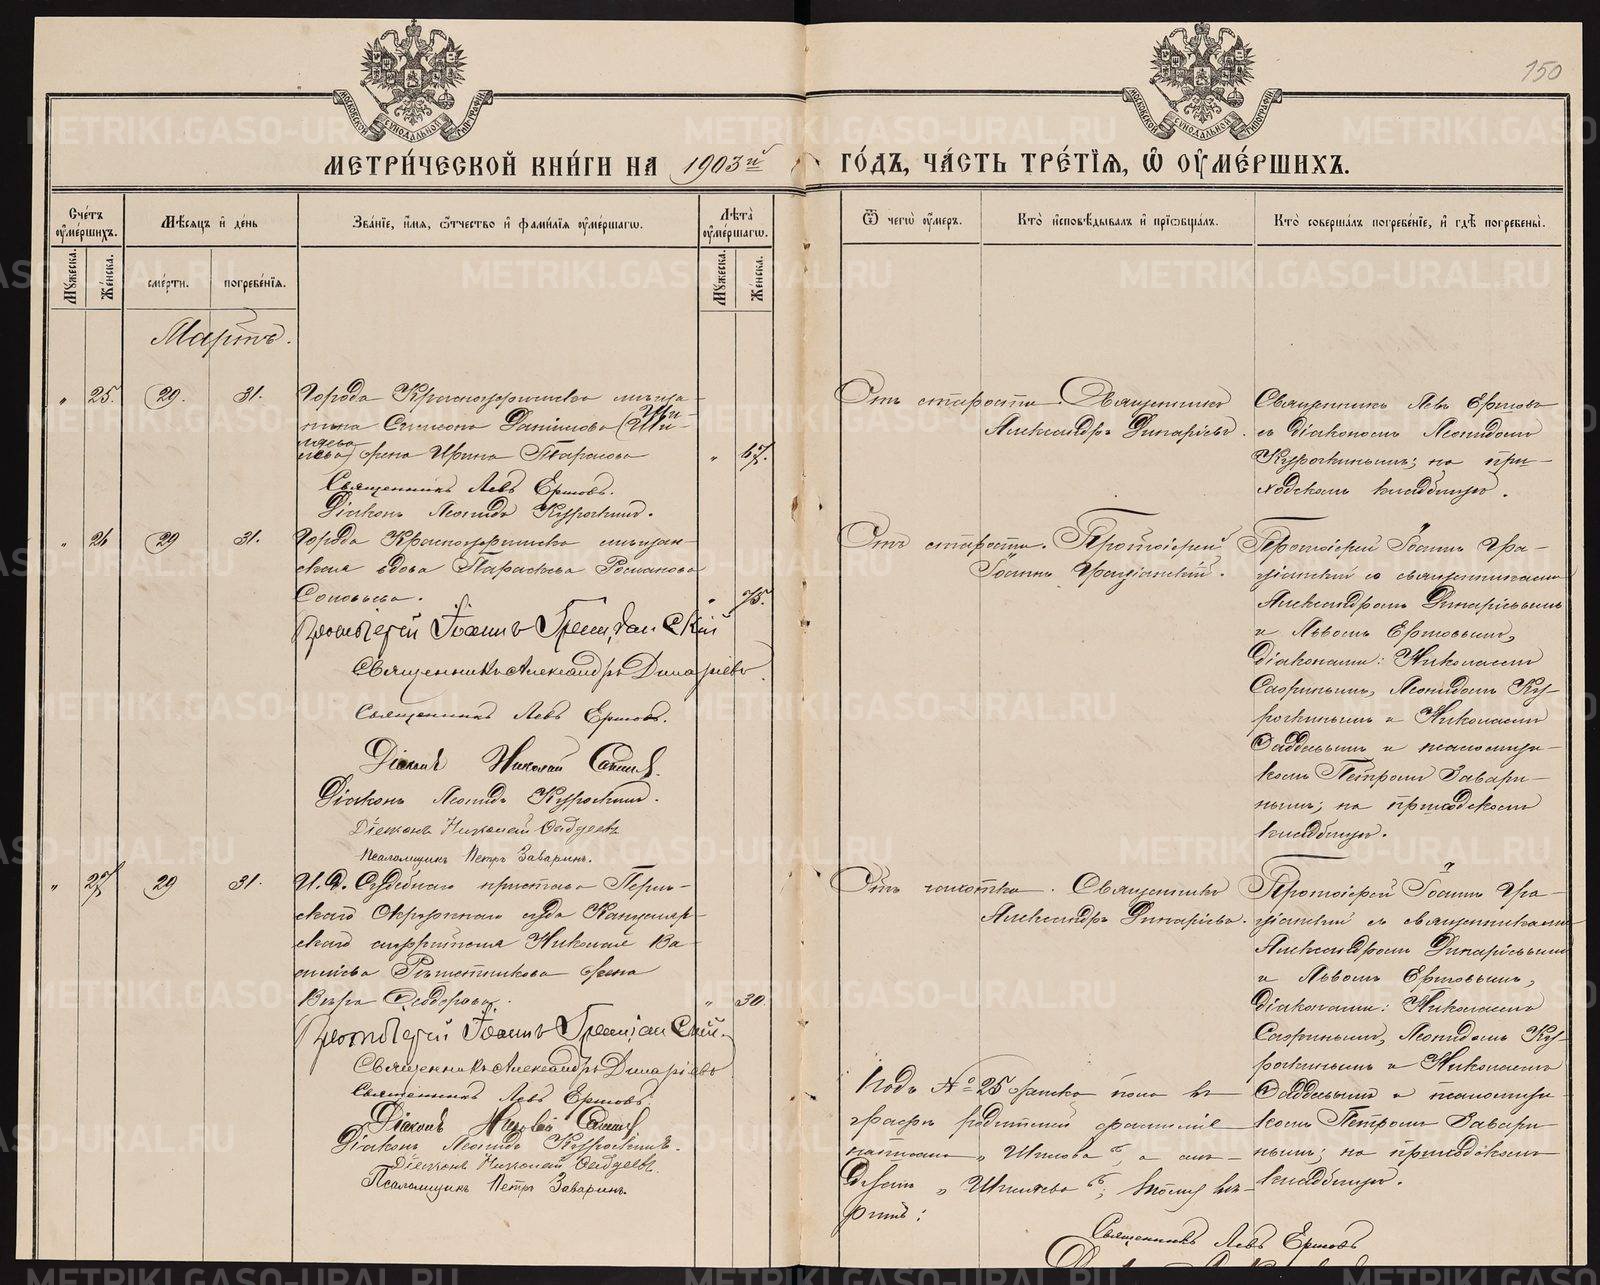 150
МОСКОВСКОЙ СѴНОДАЛЬНОЙ ТИПОГРАФІИ
МОСКОВСКОЙ СѴНОДАЛЬНОЙ ТИПОГРАФІИ
МЕТРИ́ЧЕСКОЙ КНИ́ГИ НА 1903й ГО́ДЪ, ЧА́СТЬ ТРЕ́ТІѦ, Ѽ ОУМЕ́РШИХЪ.
Сче́тъ оуме́ршихъ.
Мꙋжеска.
Же́нска.
Мѣ́сяцъ и де́нь
сме́рти.
погребе́нїя.
Зва́нїе, и́мя, ѻ҆́тчество и҆ фами́лїя оуме́ршагѡ.
Лѣ́та оуме́ршагѡ.
Мꙋжеска.
Же́нска.
Ѿ чегѡ̀ оу́меръ.
Кто̀ и҆сповѣ́дывалъ и҆ прїѡбща́лъ.
Кто̀ соверша́лъ погребе́нїе, и҆ гдѣ̀ погребены̀.
Мартъ.
" 25. 29. 31.
Города Красноуфимска мѣща-
нина Симеона Данилова (Ши-
Ши-
ляева
лова) жена Ирина Тарасова " 67.
Священникъ Левъ Ершовъ.
Діаконъ Леонидъ Курочкинъ.
Отъ старости.
Священникъ
Александръ Динаріевъ.
Священникъ Левъ Ершовъ
съ діакономъ Леонидомъ
Курочкинымъ; на при-
ходскомъ кладбищѣ.
" 26 29 31.
Города Красноуфимска мѣщан-
ская вдова Параскева Романова
Соловьева. " 75.
Протоіерей Іоаннъ Граціанскій
Священникъ Александръ Динаріевъ
Священникъ Левъ Ершовъ.
Діаконъ Николай
Діаконъ Леонидъ Курочкинъ.
Діаконъ Николай Фаддеевъ
Псаломщикъ Петръ Заваринъ.
Отъ старости.
Протоіерей
Іоаннъ Граціанскій.
Протоіерей Іоаннъ Гра-
ціанскій со священниками
Александромъ Динаріевымъ
и Львомъ Ершовымъ,
діаконами: Николаемъ
Леонидомъ Ку-
рочкинымъ и Николаемъ
Фаддеевымъ и псаломщи-
комъ Петромъ Завари-
нымъ; на приходскомъ
кладбищѣ.
" 27 29 31.
И. д. Судебнаго пристава Перм-
скаго Окружнаго суда Канцеляр-
скаго служителя Николая Ва-
сильева Рѣшетникова жена
Вѣра Феодорова. " 30.
Протоіерей Іоаннъ Граціанскій.
Священникъ Александръ Динаріевъ
Священникъ Левъ Ершовъ.
Діаконъ Николай
Діаконъ Леонидъ Курочкинъ.
Діаконъ Николай Фаддеевъ.
Псаломщикъ Петръ Заваринъ.
Отъ чахотки.
Священникъ
Александръ Динаріевъ.
Протоіерей Іоаннъ Гра-
ціанскій съ священниками
Александромъ Динаріевымъ
и Львомъ Ершовымъ,
діаконами: Николаемъ
Леонидомъ Ку-
рочкинымъ и Николаемъ
Фаддеевымъ и псаломщи-
комъ Петромъ Завари-
нымъ; на приходскомъ
кладбищѣ.
Подъ № 25 въ
графѣ родителей фамилія
написана „Шилова“, а слѣ-
дуетъ „Шиляева“;
Священникъ Левъ Ершовъ
METRIKI.GASO-URAL.RU